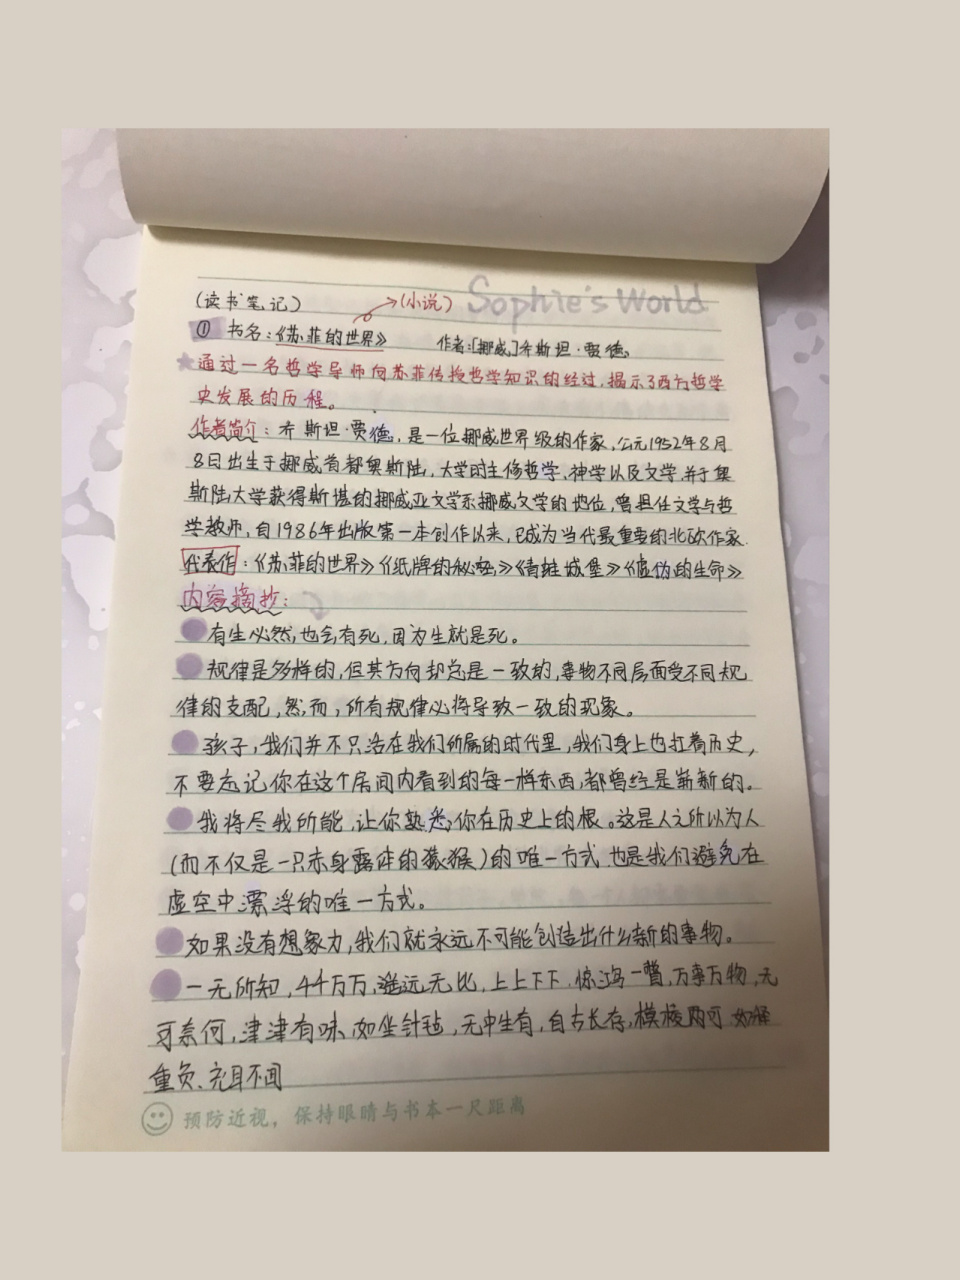 Sophie's World
(读书笔记) →(小说)
① 书名:《苏菲的世界》 作者:[挪威]乔斯坦·贾德。
★通过一名哲学导师向苏菲传授哲学知识的经过,揭示了西方哲学
史发展的历程。
作者简介:乔斯坦·贾德,是一位挪威世界级的作家,公元1952年8月
8日出生于挪威首都奥斯陆,大学时主修哲学,神学以及文学,并于奥
斯陆大学获得斯堪的挪威亚文学系挪威文学的地位,曾担任文学与哲
学教师,自1986年出版第一本创作以来,已成为当代最重要的北欧作家.
代表作:《苏菲的世界》《纸牌的秘密》《青蛙城堡》《虚伪的生命》
内容摘抄:
有生必然,也会有死,因为生就是死。
规律是多样的,但其方向却总是一致的,事物不同层面受不同规
律的支配,然而,所有规律必将导致一致的现象。
孩子,我们并不只活在我们所属的时代里,我们身上也扛着历史,
不要忘记你在这个房间内看到的每一样东西,都曾经是崭新的。
我将尽我所能,让你熟悉你在历史上的根。这是人之所以为人
(而不仅是一只赤身露体的猿猴)的唯一方式,也是我们避免在
虚空中漂浮的唯一方式。
如果没有想象力,我们就永远不可能创造出什么新的事物。
一无所知,千千万万,遥远无比,上上下下,惊鸿一瞥,万事万物,无
可奈何,津津有味,如坐针毡,无中生有,自古长存,模棱两可,如释
重负、充耳不闻
预防近视，保持眼睛与书本一尺距离